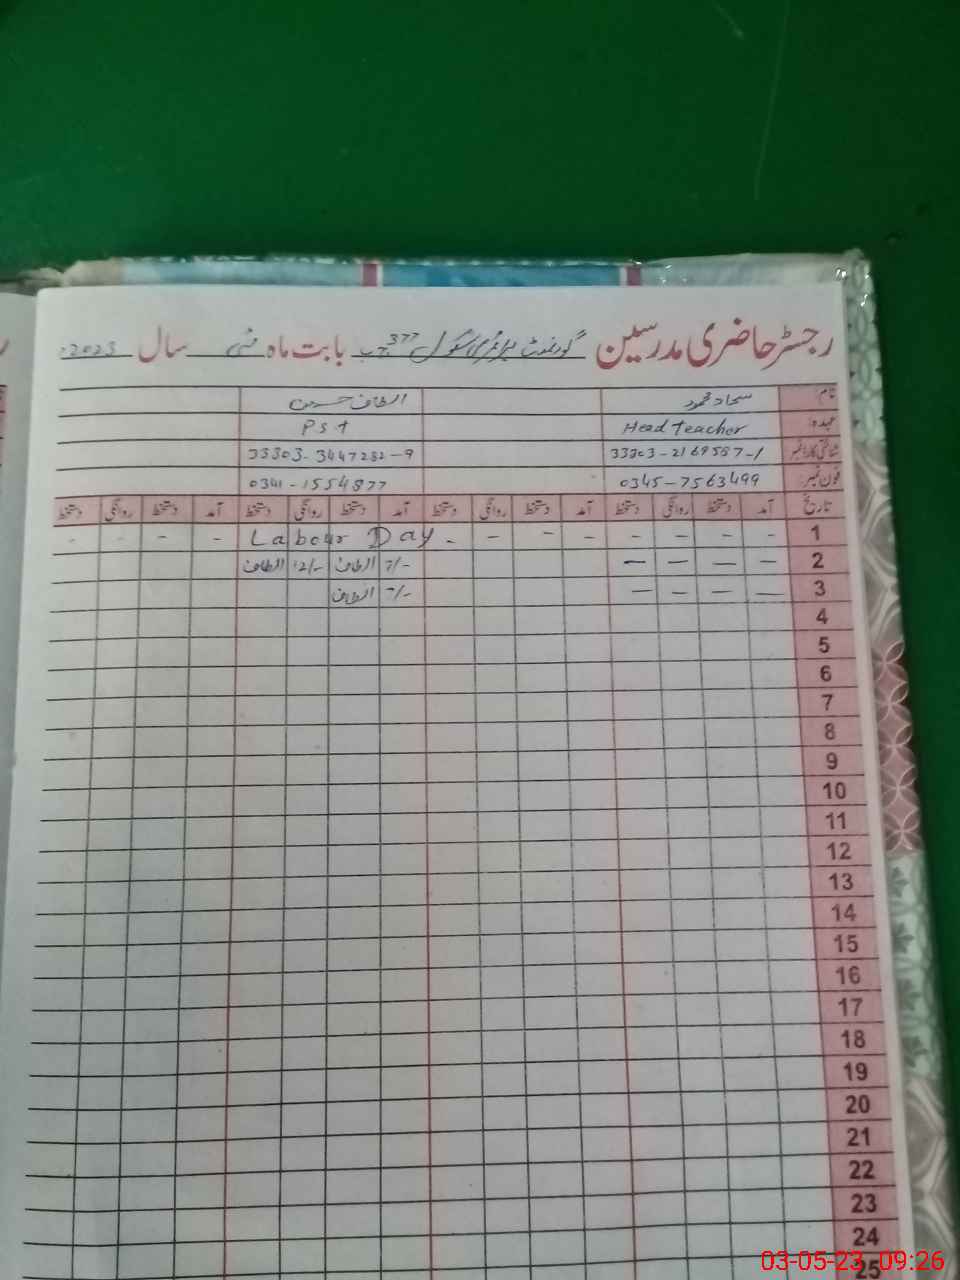 رجسٹر حاضری مدرسین گورنمنٹ پرائمری سکول 377 ج ب بابت ماہ مئی سال 2023ء
نام: سجاد محمود الطاف حسین
عہدہ: Head Teacher PST
شناختی کارڈ نمبر 33303-2169587-1 33303-3447282-9
فون نمبر: 0345-7563499 0341-1554877
تاریخ آمد دستخط روانگی دستخط آمد دستخط روانگی دستخط آمد دستخط روانگی دستخط آمد دستخط روانگی دستخط
1 - - - - - - - - Labour Day - - - -
2 — — — — 7/- الطاف 12/- الطاف
3 — — — — 7/- الطاف
4
5
6
7
8
9
10
11
12
13
14
15
16
17
18
19
20
21
22
23
24
25
03-05-23 09:26